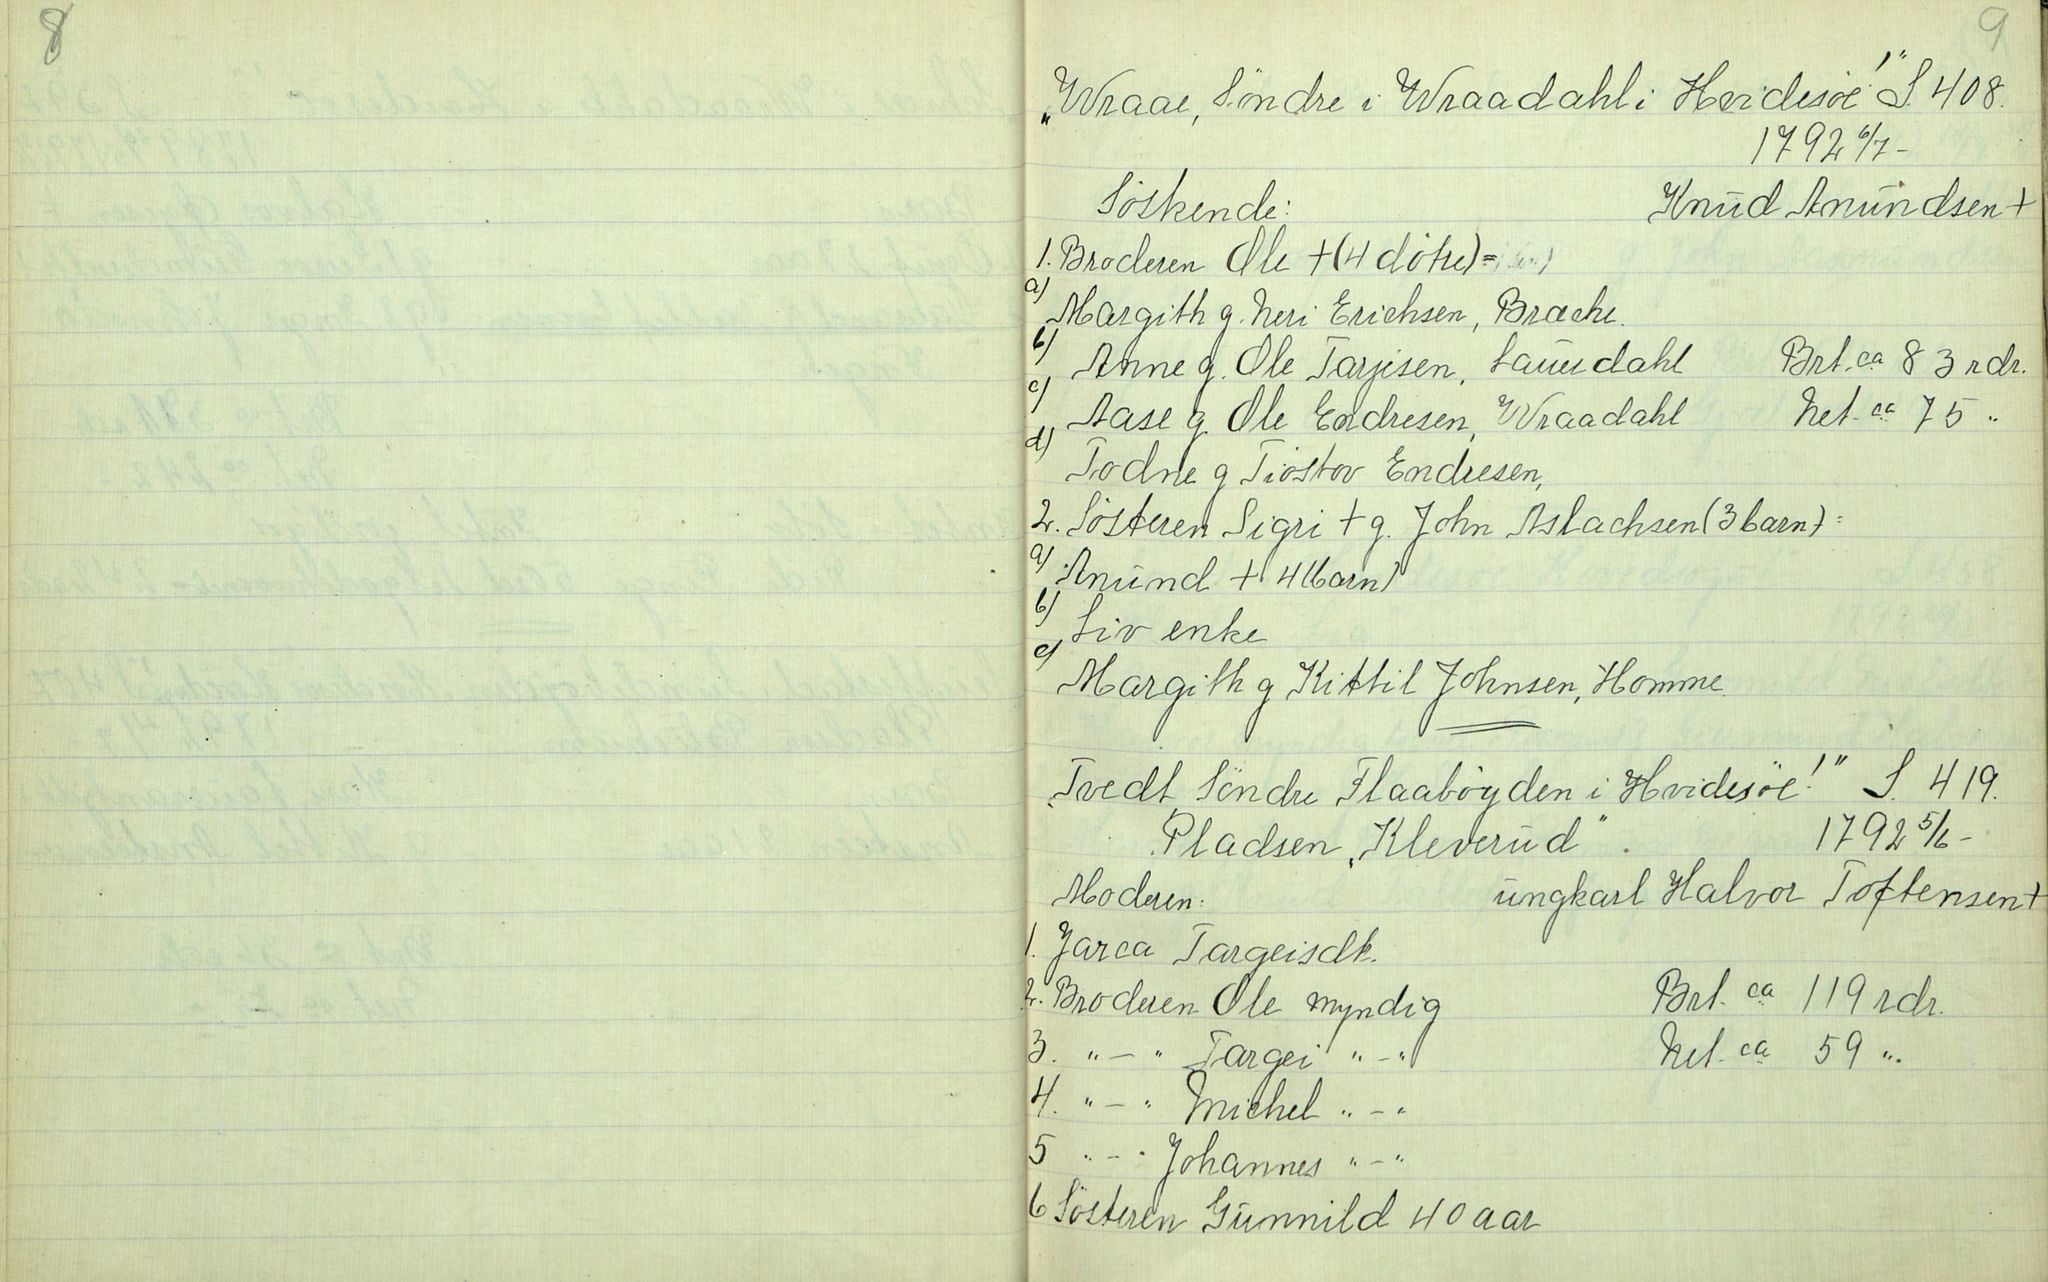 8
9
„Wraae, Söndre i Wraadahl i Hvidesöe!" S. 408.
1792 6/7-
Söskende: Knud Anundsen +
1. Broderen Ole + (4 dötre) =
a) Margith g. Neri Erichsen, Brache.
b) Anne g. Ole Tarjisen, Lauerdahl Brt. ca 83 rdr.
c) Aase g. Ole Endresen, Wraadahl Net. ca 75 "
d) Todne g Tiostov Endresen,
2. Sösteren Sigri + g. John Aslachsen (3 barn) =
a) Anund + 4 (barn)
b) Liv enke
c) Margith g Kittil Johnsen, Homme.
„Tvedt Söndre Flaabøyden i Hvidesöe!" S. 419.
Pladsen „Kleverud". 1792 5/6-
Moderen: ungkarl Halvor Toftensen +
1. Jarca Targeisdt.
2. Broderen Ole myndig Brt. ca 119 rdr.
3. "-" Targei "-" Net. ca 59 "
4. "-" Michel "-"
5 "-" Johannes "-"
6 Sösteren Gunnild 40 aar